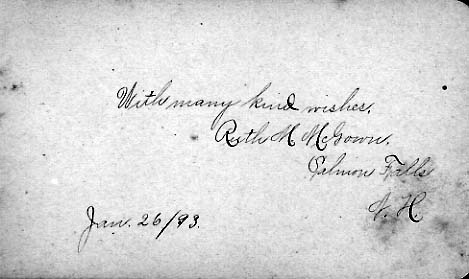 With many kind wishes.
Ruth M McGown.
Salmon Falls
N. H
Jan. 26/93.